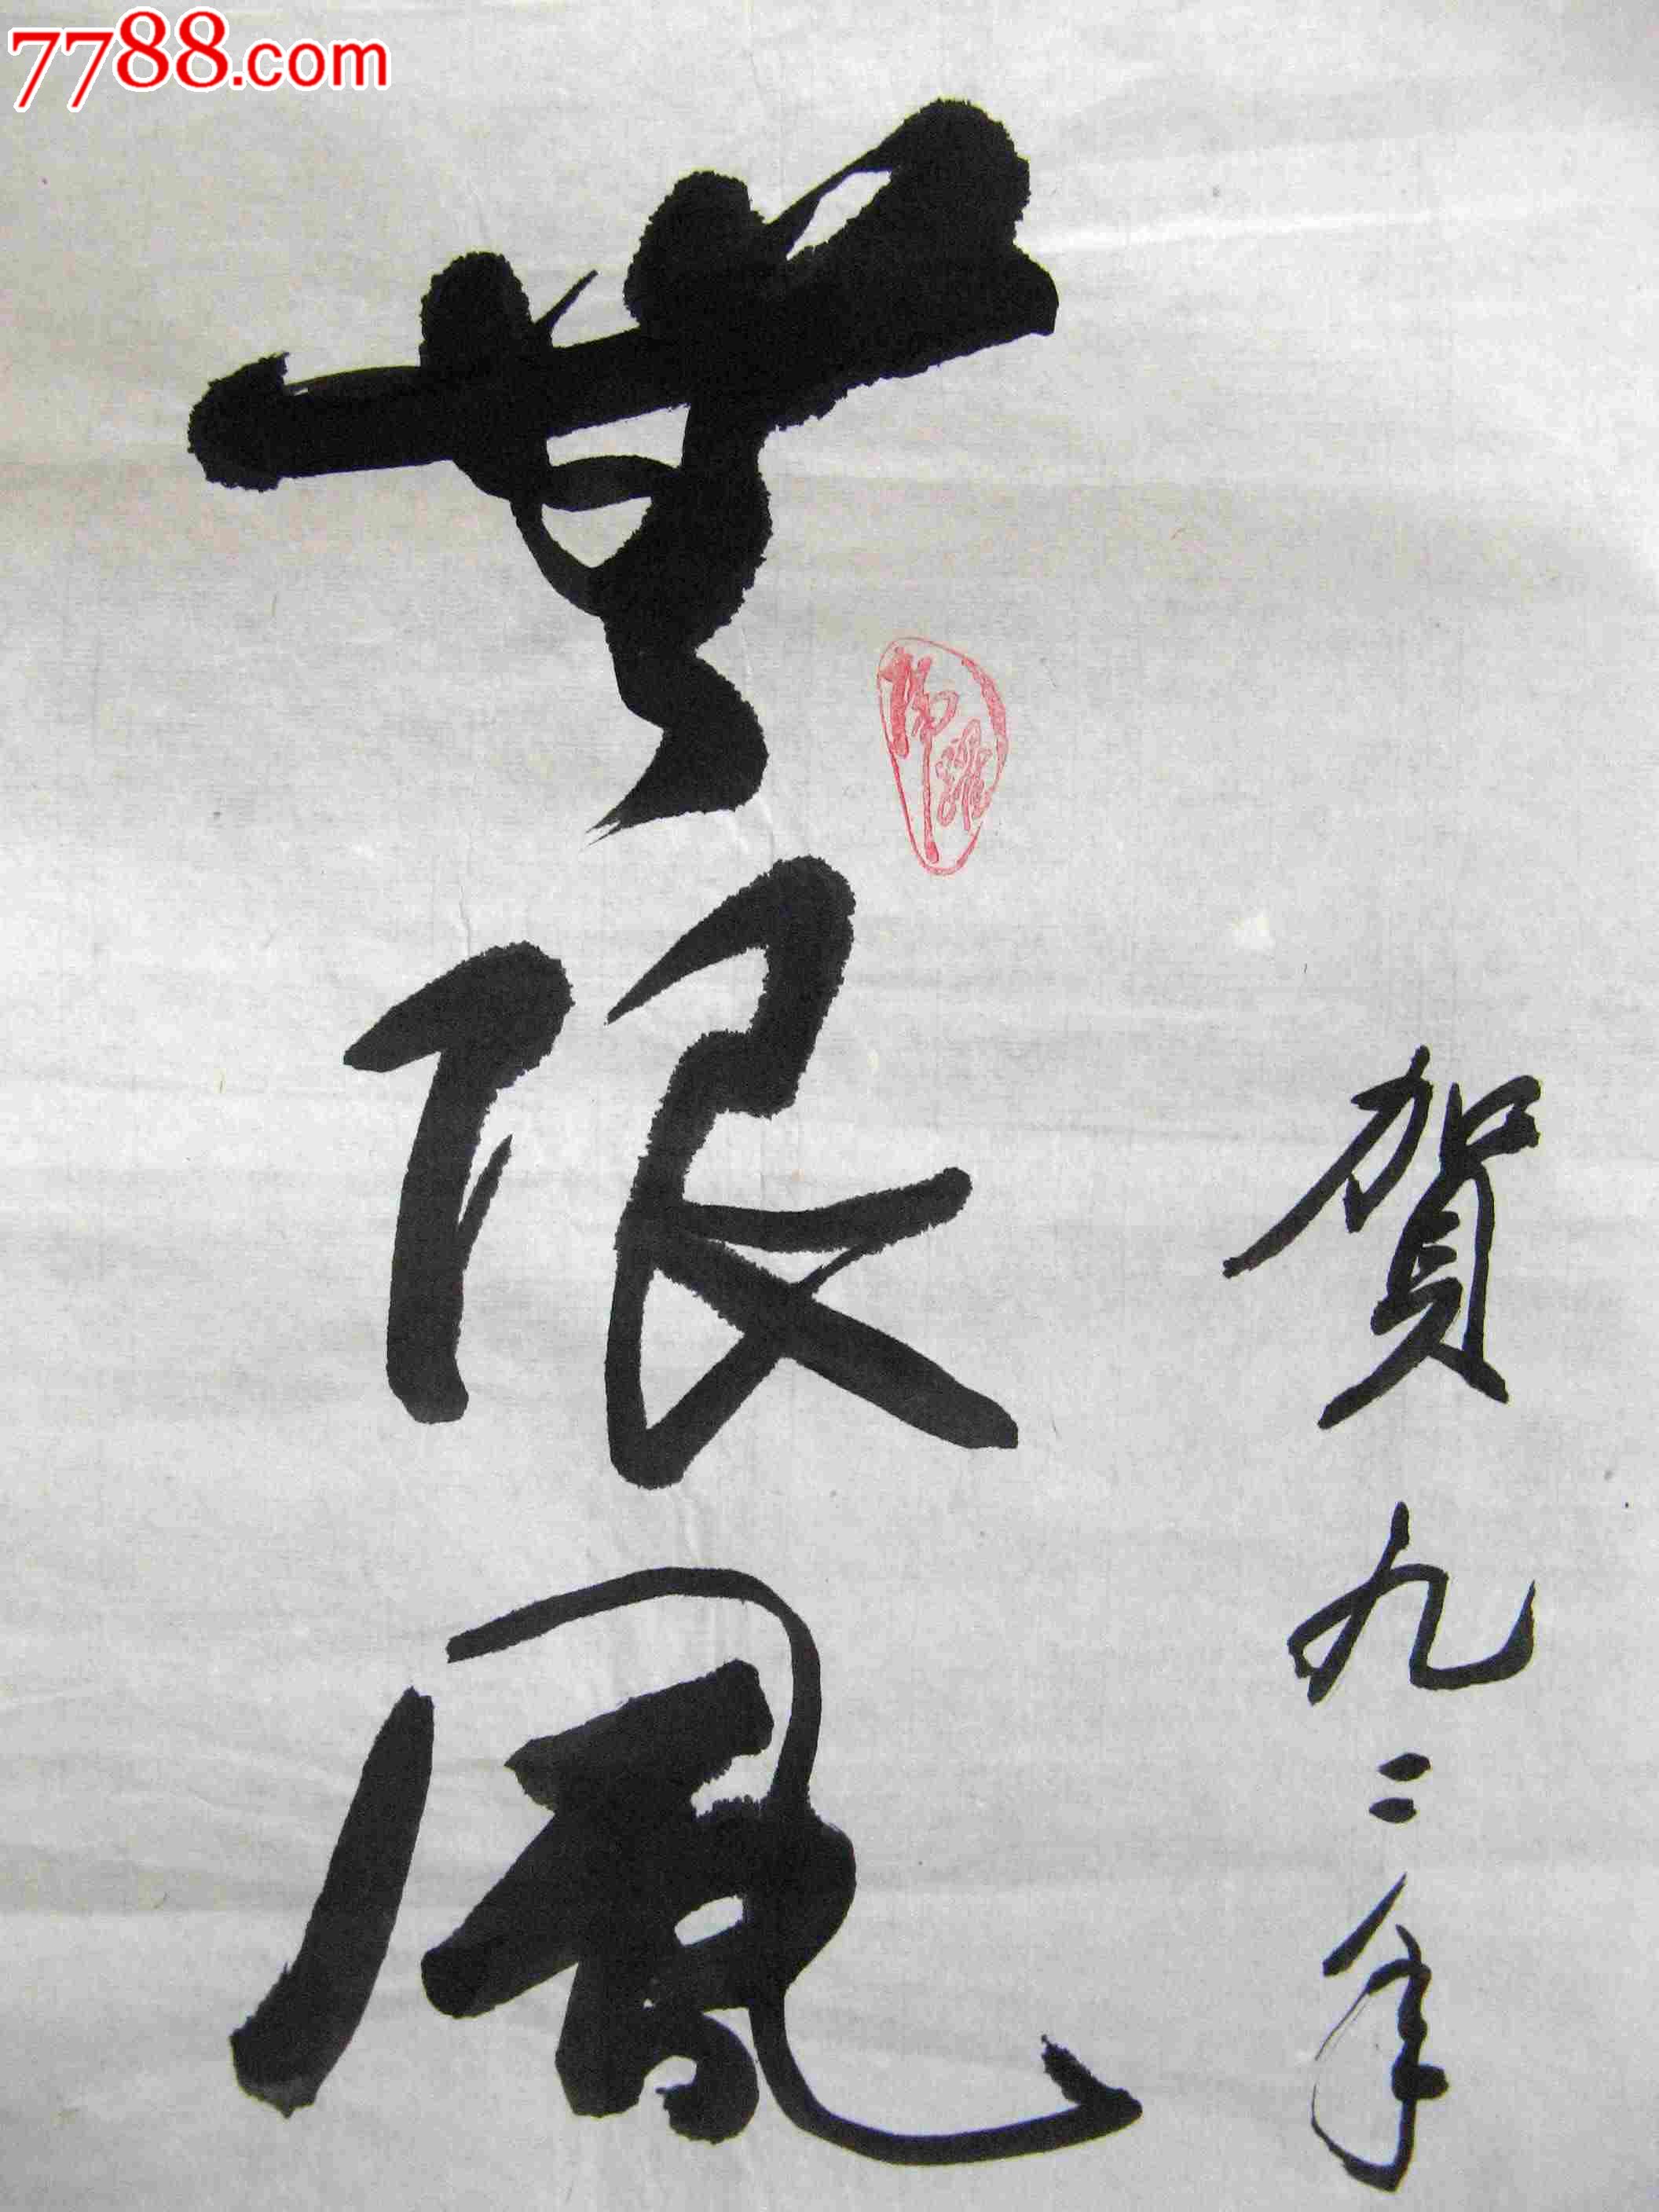 7788.com
賀九二年
無限風